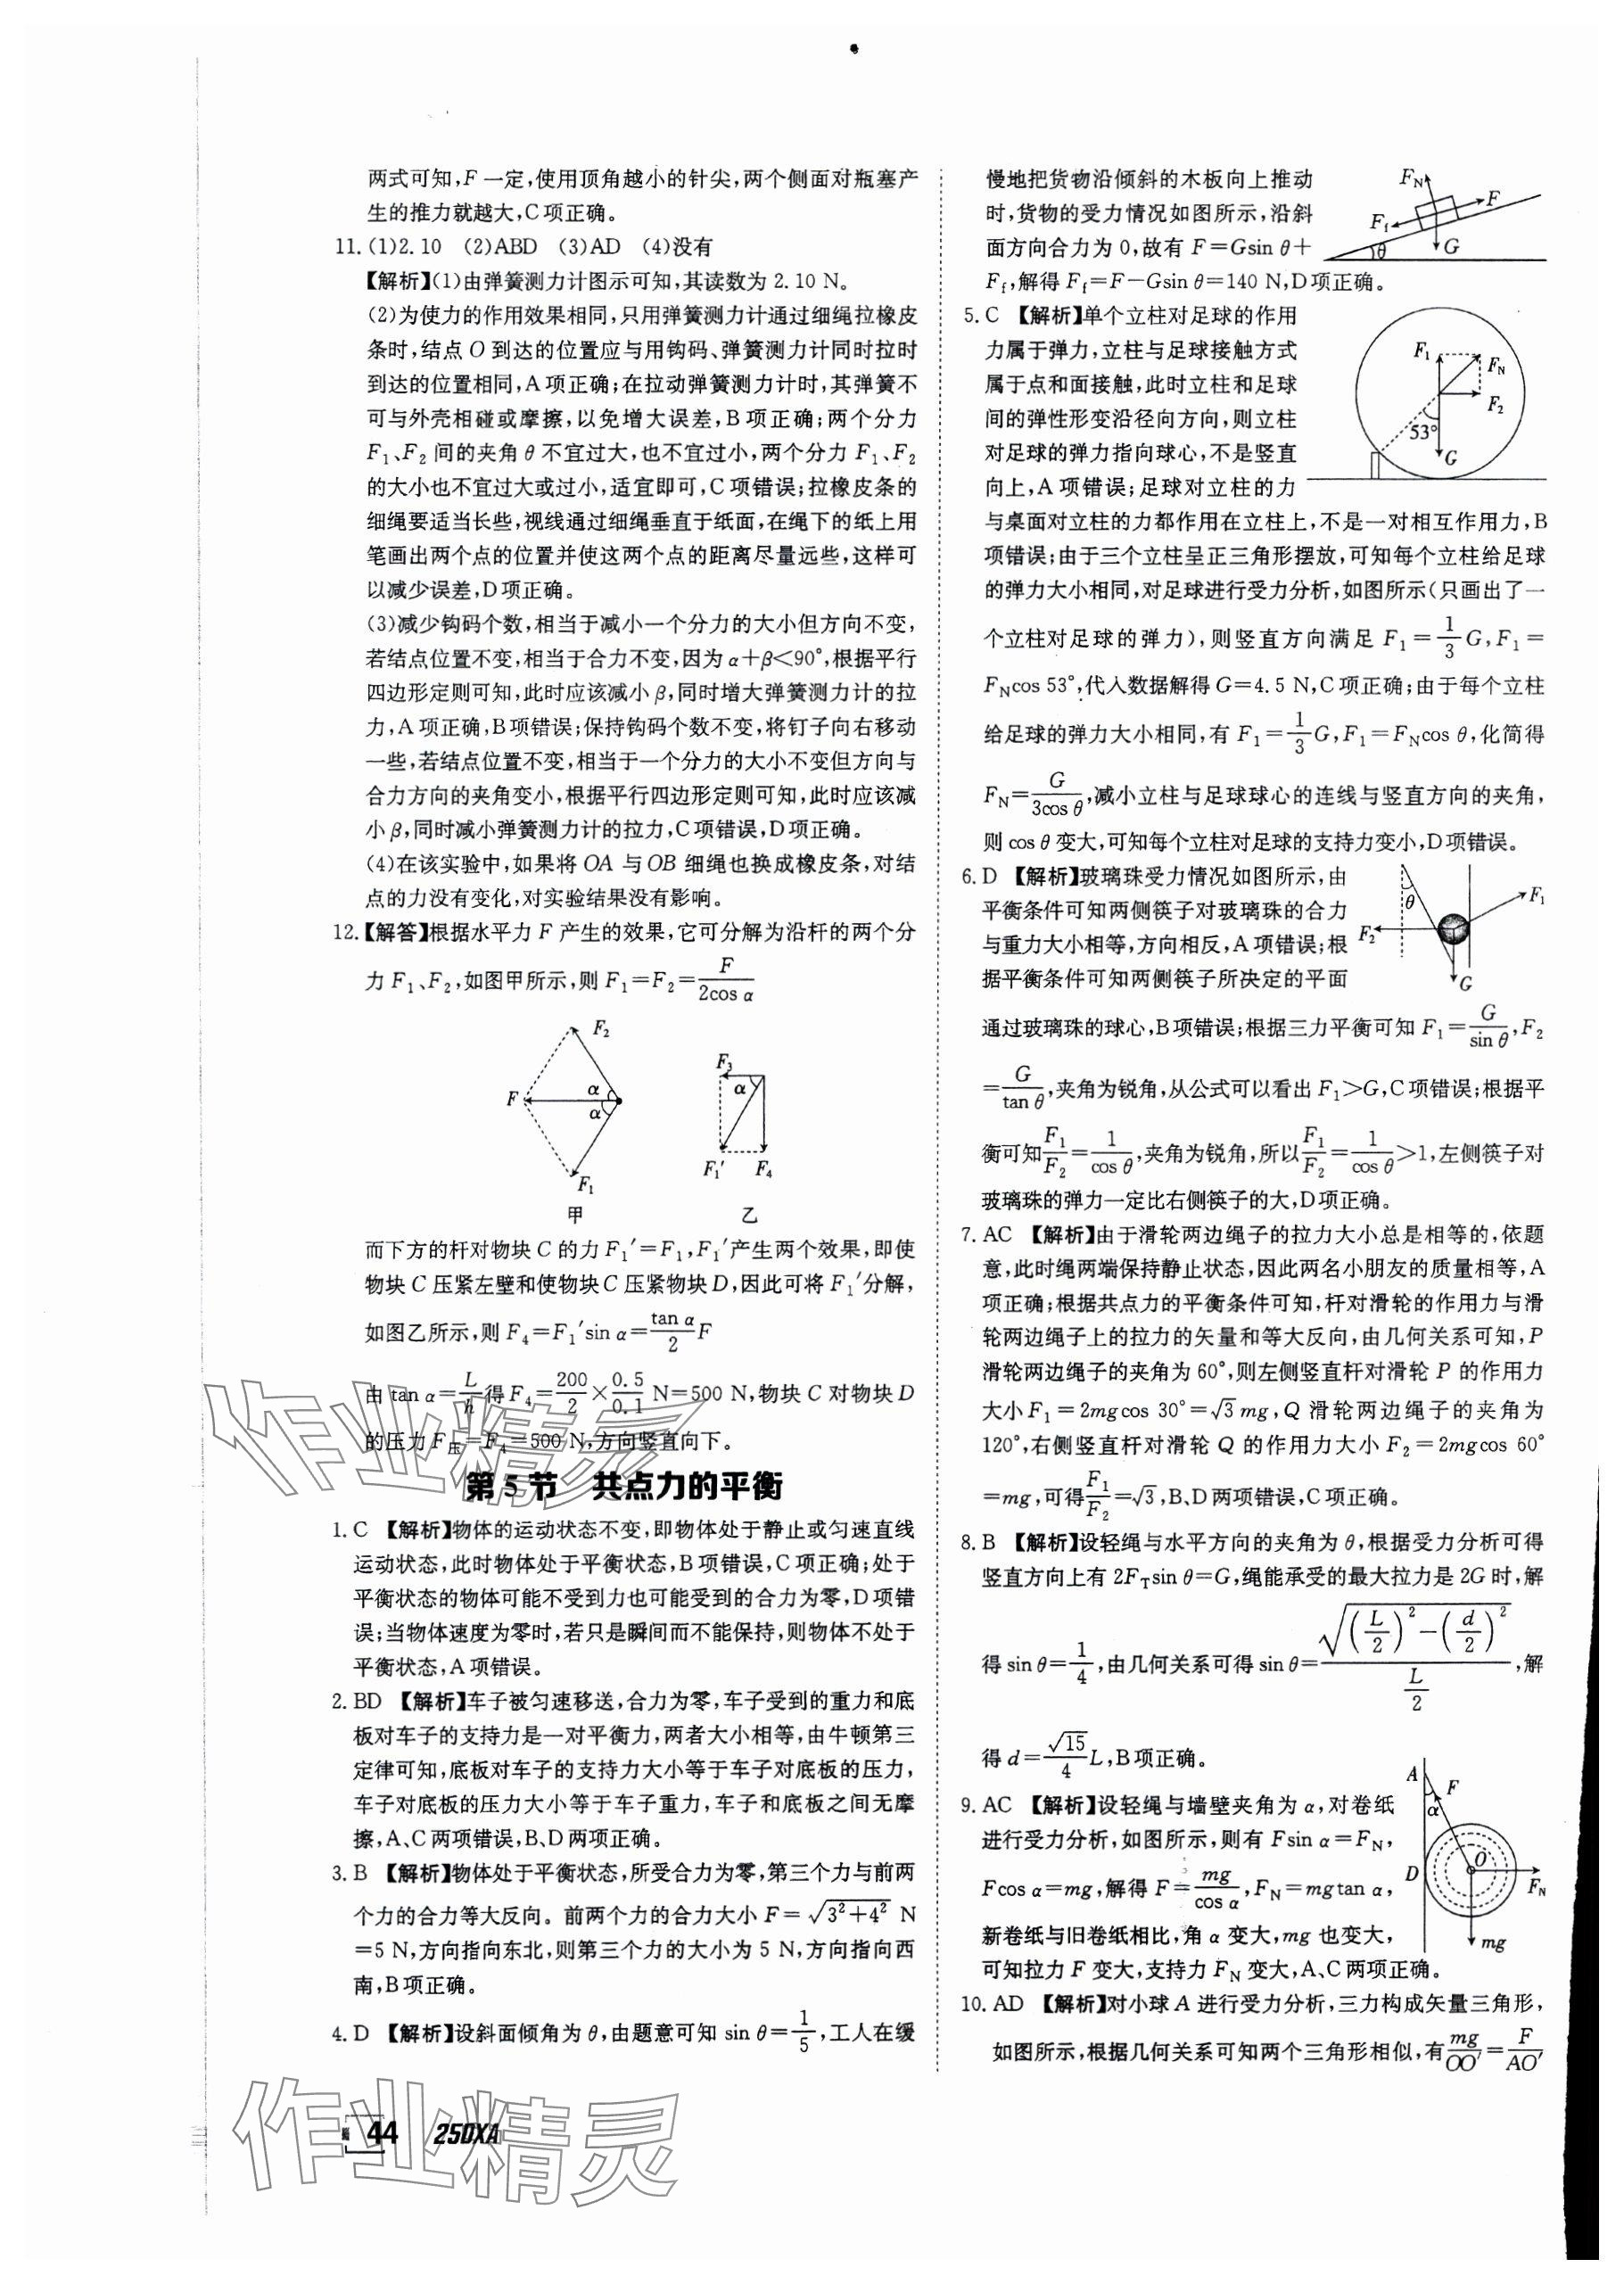 两式可知,F 一定,使用顶角越小的针尖,两个侧面对瓶塞产
生的推力就越大,C项正确。
11.(1)2.10 (2)ABD (3)AD (4)没有
【解析】(1)由弹簧测力计图示可知,其读数为 2.10 N。
(2)为使力的作用效果相同,只用弹簧测力计通过细绳拉橡皮
条时,结点 O 到达的位置应与用钩码、弹簧测力计同时拉时
到达的位置相同,A项正确;在拉动弹簧测力计时,其弹簧不
可与外壳相碰或摩擦,以免增大误差,B项正确;两个分力
F₁、F₂ 间的夹角 θ 不宜过大,也不宜过小,两个分力 F₁、F₂
的大小也不宜过大或过小,适宜即可,C项错误;拉橡皮条的
细绳要适当长些,视线通过细绳垂直于纸面,在绳下的纸上用
笔画出两个点的位置并使这两个点的距离尽量远些,这样可
以减少误差,D项正确。
(3)减少钩码个数,相当于减小一个分力的大小但方向不变,
若结点位置不变,相当于合力不变,因为 α+β<90°,根据平行
四边形定则可知,此时应该减小 β,同时增大弹簧测力计的拉
力,A项正确,B项错误;保持钩码个数不变,将钉子向右移动
一些,若结点位置不变,相当于一个分力的大小不变但方向与
合力方向的夹角变小,根据平行四边形定则可知,此时应该减
小 β,同时减小弹簧测力计的拉力,C项错误,D项正确。
(4)在该实验中,如果将 OA 与 OB 细绳也换成橡皮条,对结
点的力没有变化,对实验结果没有影响。
12.【解答】根据水平力 F 产生的效果,它可分解为沿杆的两个分
力 F₁、F₂,如图甲所示,则 F₁=F₂=F/(2cos α)
F₂
F
α
α
F₁
甲
F₃
α
F₁′
F₄
乙
而下方的杆对物块 C 的力 F₁′=F₁,F₁′产生两个效果,即使
物块 C 压紧左壁和使物块 C 压紧物块 D,因此可将 F₁′分解,
如图乙所示,则 F₄=F₁′sin α=(tan α/2)F
由 tan α=L/h得 F₄=200/2×0.5/0.1 N=500 N,物块 C 对物块 D
的压力 F压=F₄=500 N,方向竖直向下。
第 5 节 共点力的平衡
1. C 【解析】物体的运动状态不变,即物体处于静止或匀速直线
运动状态,此时物体处于平衡状态,B项错误,C项正确;处于
平衡状态的物体可能不受到力也可能受到的合力为零,D项错
误;当物体速度为零时,若只是瞬间而不能保持,则物体不处于
平衡状态,A项错误。
2. BD 【解析】车子被匀速移送,合力为零,车子受到的重力和底
板对车子的支持力是一对平衡力,两者大小相等,由牛顿第三
定律可知,底板对车子的支持力大小等于车子对底板的压力,
车子对底板的压力大小等于车子重力,车子和底板之间无摩
擦,A、C两项错误,B、D两项正确。
3. B 【解析】物体处于平衡状态,所受合力为零,第三个力与前两
个力的合力等大反向。前两个力的合力大小 F=√(3²+4²) N
=5 N,方向指向东北,则第三个力的大小为 5 N,方向指向西
南,B项正确。
4. D 【解析】设斜面倾角为 θ,由题意可知 sin θ=1/5,工人在缓
慢地把货物沿倾斜的木板向上推动
时,货物的受力情况如图所示,沿斜
面方向合力为 0,故有 F=Gsin θ+
Ff,解得 Ff=F−Gsin θ=140 N,D项正确。
FN
F
Ff
θ
G
5. C 【解析】单个立柱对足球的作用
力属于弹力,立柱与足球接触方式
属于点和面接触,此时立柱和足球
间的弹性形变沿径向方向,则立柱
对足球的弹力指向球心,不是竖直
向上,A项错误;足球对立柱的力
与桌面对立柱的力都作用在立柱上,不是一对相互作用力,B
项错误;由于三个立柱呈正三角形摆放,可知每个立柱给足球
的弹力大小相同,对足球进行受力分析,如图所示(只画出了一
个立柱对足球的弹力),则竖直方向满足 F₁=1/3 G,F₁=
FNcos 53°,代入数据解得 G=4.5 N,C项正确;由于每个立柱
给足球的弹力大小相同,有 F₁=1/3 G,F₁=FNcos θ,化简得
FN=G/(3cos θ),减小立柱与足球球心的连线与竖直方向的夹角,
则 cos θ 变大,可知每个立柱对足球的支持力变小,D项错误。
F₁
FN
F₂
53°
G
6. D 【解析】玻璃珠受力情况如图所示,由
平衡条件可知两侧筷子对玻璃珠的合力
与重力大小相等,方向相反,A项错误;根
据平衡条件可知两侧筷子所决定的平面
通过玻璃珠的球心,B项错误;根据三力平衡可知 F₁=G/sin θ,F₂
=G/tan θ,夹角为锐角,从公式可以看出 F₁>G,C项错误;根据平
衡可知F₁/F₂=1/cos θ,夹角为锐角,所以F₁/F₂=1/cos θ>1,左侧筷子对
玻璃珠的弹力一定比右侧筷子的大,D项正确。
θ
F₁
F₂
G
7. AC 【解析】由于滑轮两边绳子的拉力大小总是相等的,依题
意,此时绳两端保持静止状态,因此两名小朋友的质量相等,A
项正确;根据共点力的平衡条件可知,杆对滑轮的作用力与滑
轮两边绳子上的拉力的矢量和等大反向,由几何关系可知,P
滑轮两边绳子的夹角为 60°,则左侧竖直杆对滑轮 P 的作用力
大小 F₁=2mgcos 30°=√3 mg,Q 滑轮两边绳子的夹角为
120°,右侧竖直杆对滑轮 Q 的作用力大小 F₂=2mgcos 60°
=mg,可得F₁/F₂=√3,B、D两项错误,C项正确。
8. B 【解析】设轻绳与水平方向的夹角为 θ,根据受力分析可得
竖直方向上有 2FTsin θ=G,绳能承受的最大拉力是 2G 时,解
得 sin θ=1/4,由几何关系可得 sin θ=√((L/2)²−(d/2)²)/(L/2),解
得 d=(√15/4)L,B项正确。
9. AC 【解析】设轻绳与墙壁夹角为 α,对卷纸
进行受力分析,如图所示,则有 Fsin α=FN,
Fcos α=mg,解得 F=mg/cos α,FN=mgtan α,
新卷纸与旧卷纸相比,角 α 变大,mg 也变大,
可知拉力 F 变大,支持力 FN 变大,A、C两项正确。
A
F
α
O
D
FN
mg
10. AD 【解析】对小球 A 进行受力分析,三力构成矢量三角形,
如图所示,根据几何关系可知两个三角形相似,有mg/OO′=F/AO′
44 25DXA
作业精灵
作业精灵